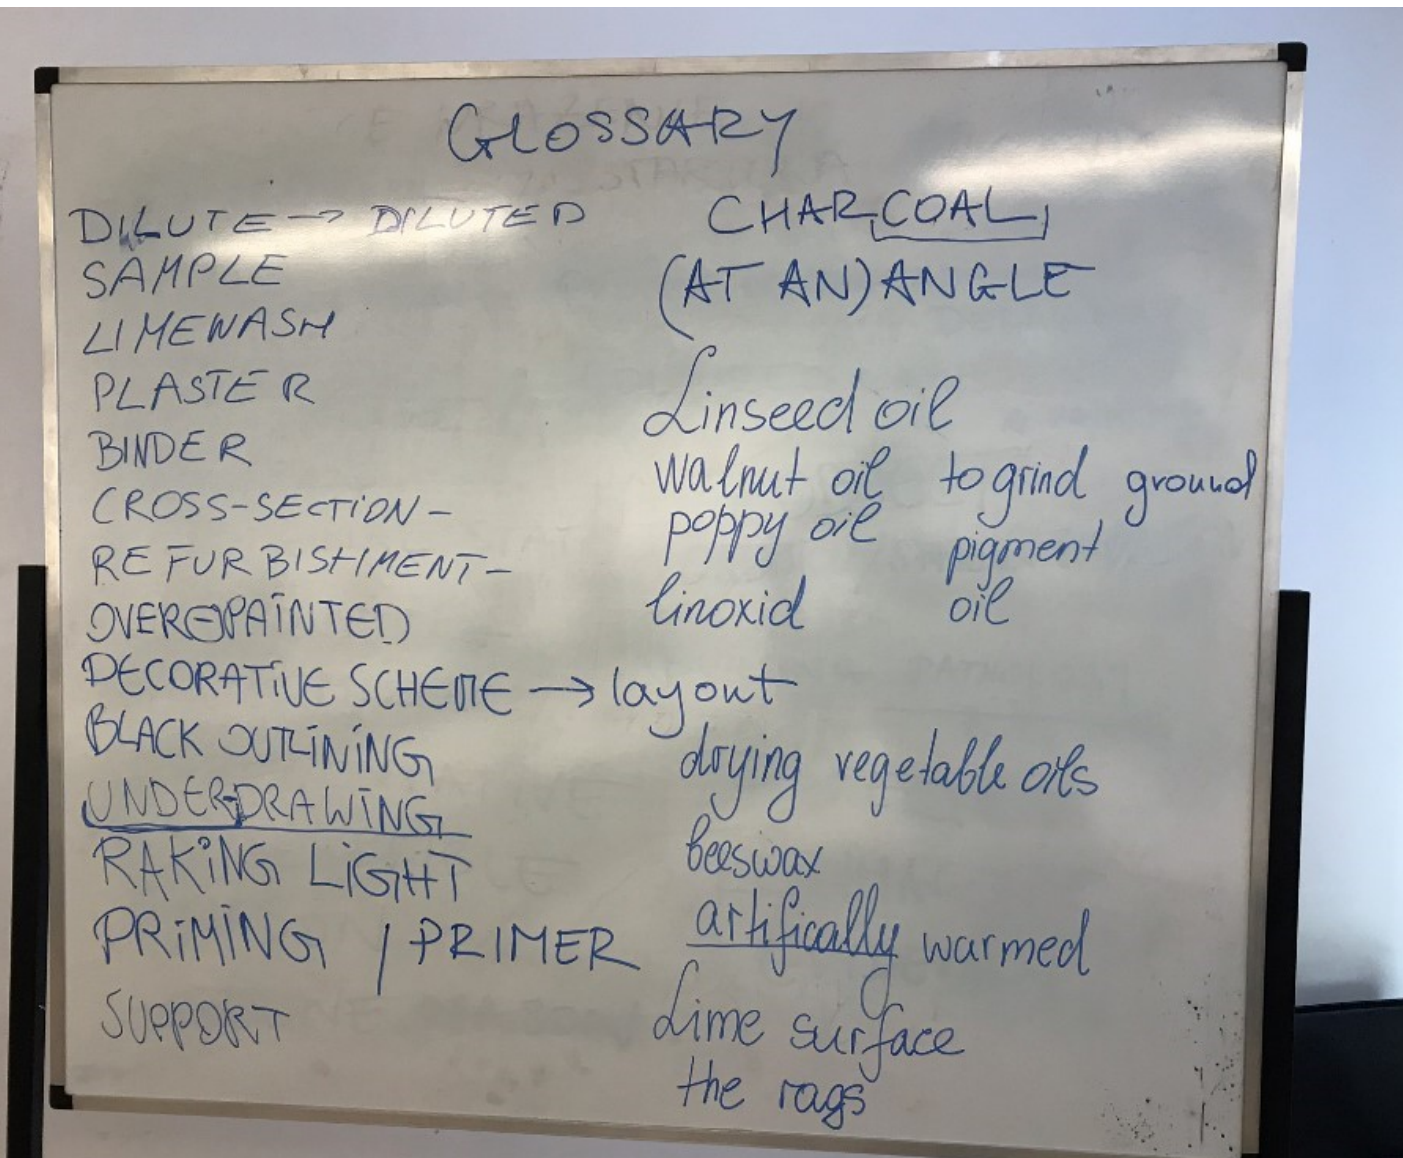 GLOSSARY
DILUTE → DILUTED
SAMPLE
LIMEWASH
PLASTER
BINDER
CROSS-SECTION -
REFURBISHMENT -
OVERPAINTED
DECORATIVE SCHEME → layout
BLACK OUTLINING
UNDERDRAWING
RAKING LIGHT
PRIMING / PRIMER
SUPPORT
CHARCOAL
(AT AN) ANGLE
Linseed oil
walnut oil to grind ground
poppy oil pigment
linoxid oil
drying vegetable oils
beeswax
artifically warmed
Lime surface
the rags